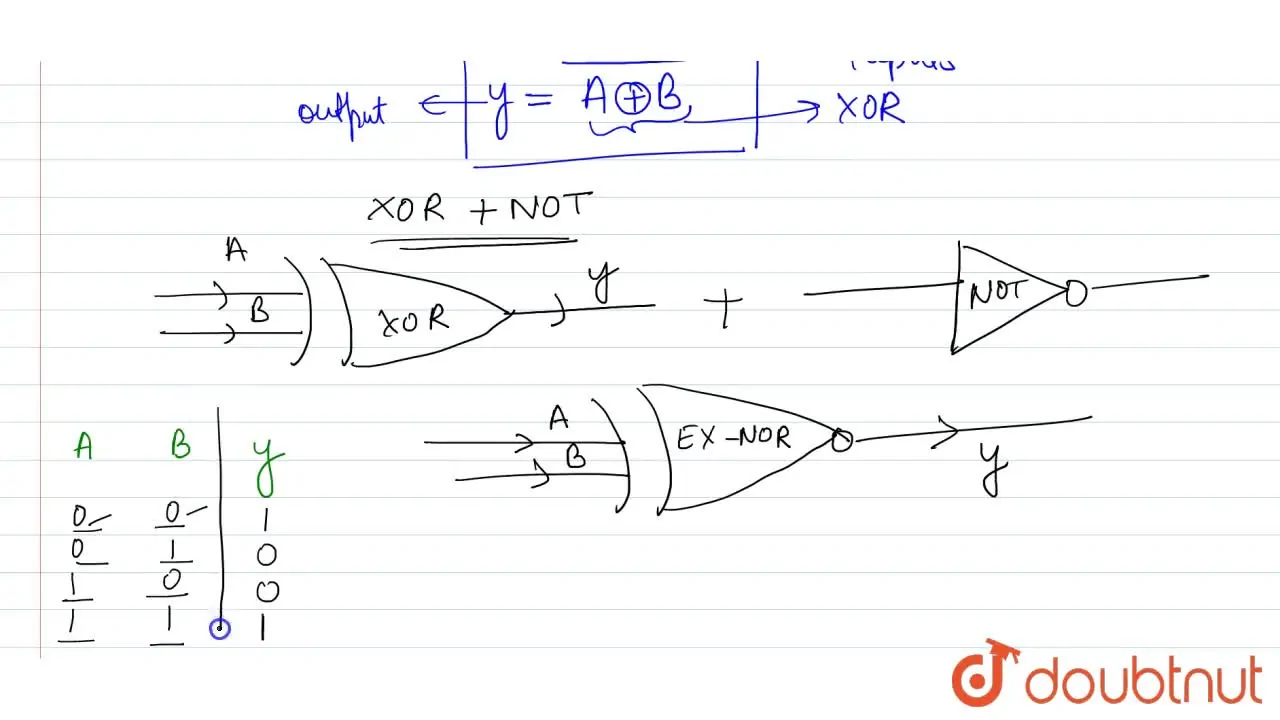 output ← y = A⊕B → XOR
XOR + NOT
A
B
XOR
y
+
NOT
A
B
EX-NOR
y
A B y
0 0 1
0 1 0
1 0 0
1 1 1
doubtnut